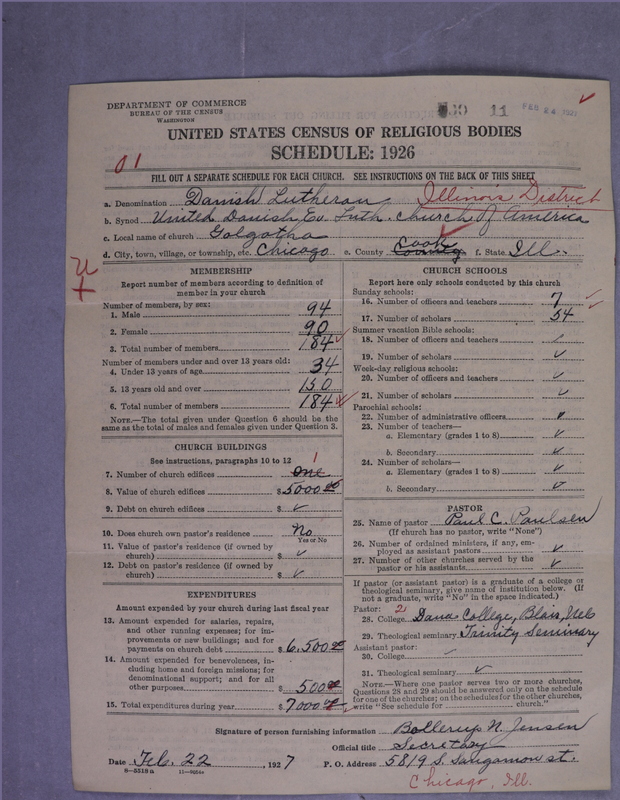 DEPARTMENT OF COMMERCE
BUREAU OF THE CENSUS
WASHINGTON
11 FEB 24 1927
UNITED STATES CENSUS OF RELIGIOUS BODIES
SCHEDULE: 1926
01
FILL OUT A SEPARATE SCHEDULE FOR EACH CHURCH. SEE INSTRUCTIONS ON THE BACK OF THIS SHEET
a. Denomination Danish Lutheran Illinois District
b. Synod United Danish Ev. Luth. Church of America
c. Local name of church Golgatha
d. City, town, village, or township, etc. Chicago e. County Cook County f. State Ill.
MEMBERSHIP
Report number of members according to definition of
member in your church
Number of members, by sex:
1. Male 94
2. Female 90
3. Total number of members 184
Number of members under and over 13 years old:
4. Under 13 years of age 34
5. 13 years old and over 150
6. Total number of members 184
NOTE.—The total given under Question 6 should be the
same as the total of males and females given under Question 3.
CHURCH BUILDINGS
See instructions, paragraphs 10 to 12
7. Number of church edifices one 1
8. Value of church edifices $5000 00
9. Debt on church edifices $ ✓
10. Does church own pastor's residence No
Yes or No
11. Value of pastor's residence (if owned by
church) $ ✓
12. Debt on pastor's residence (if owned by
church) $ ✓
EXPENDITURES
Amount expended by your church during last fiscal year
13. Amount expended for salaries, repairs,
and other running expenses; for im-
provements or new buildings; and for
payments on church debt $6,500 00
14. Amount expended for benevolences, in-
cluding home and foreign missions; for
denominational support; and for all
other purposes $500 00
15. Total expenditures during year $7000 00
CHURCH SCHOOLS
Report here only schools conducted by this church
Sunday schools:
16. Number of officers and teachers 7
17. Number of scholars 54
Summer vacation Bible schools:
18. Number of officers and teachers ✓
19. Number of scholars ✓
Week-day religious schools:
20. Number of officers and teachers ✓
21. Number of scholars ✓
Parochial schools:
22. Number of administrative officers ✓
23. Number of teachers—
a. Elementary (grades 1 to 8) ✓
b. Secondary ✓
24. Number of scholars—
a. Elementary (grades 1 to 8) ✓
b. Secondary ✓
PASTOR
25. Name of pastor Paul C. Paulsen
(If church has no pastor, write "None")
26. Number of ordained ministers, if any, em-
ployed as assistant pastors ✓
27. Number of other churches served by the
pastor or his assistants ✓
If pastor (or assistant pastor) is a graduate of a college or
theological seminary, give name of institution below. (If
not a graduate, write "No" in the space indicated.)
Pastor: 2
28. College Dana College, Blair, Neb
29. Theological seminary Trinity Seminary
Assistant pastor:
30. College
31. Theological seminary ✓
NOTE.—Where one pastor serves two or more churches,
Questions 28 and 29 should be answered only on the schedule
for one of the churches; on the schedules for the other churches,
write "See schedule for church."
Signature of person furnishing information Bollerup N. Jensen
Official title Secretary
Date Feb. 22, 1927 P. O. Address 5819 S. Sangamon st.
8—5519a
Chicago, Ill.